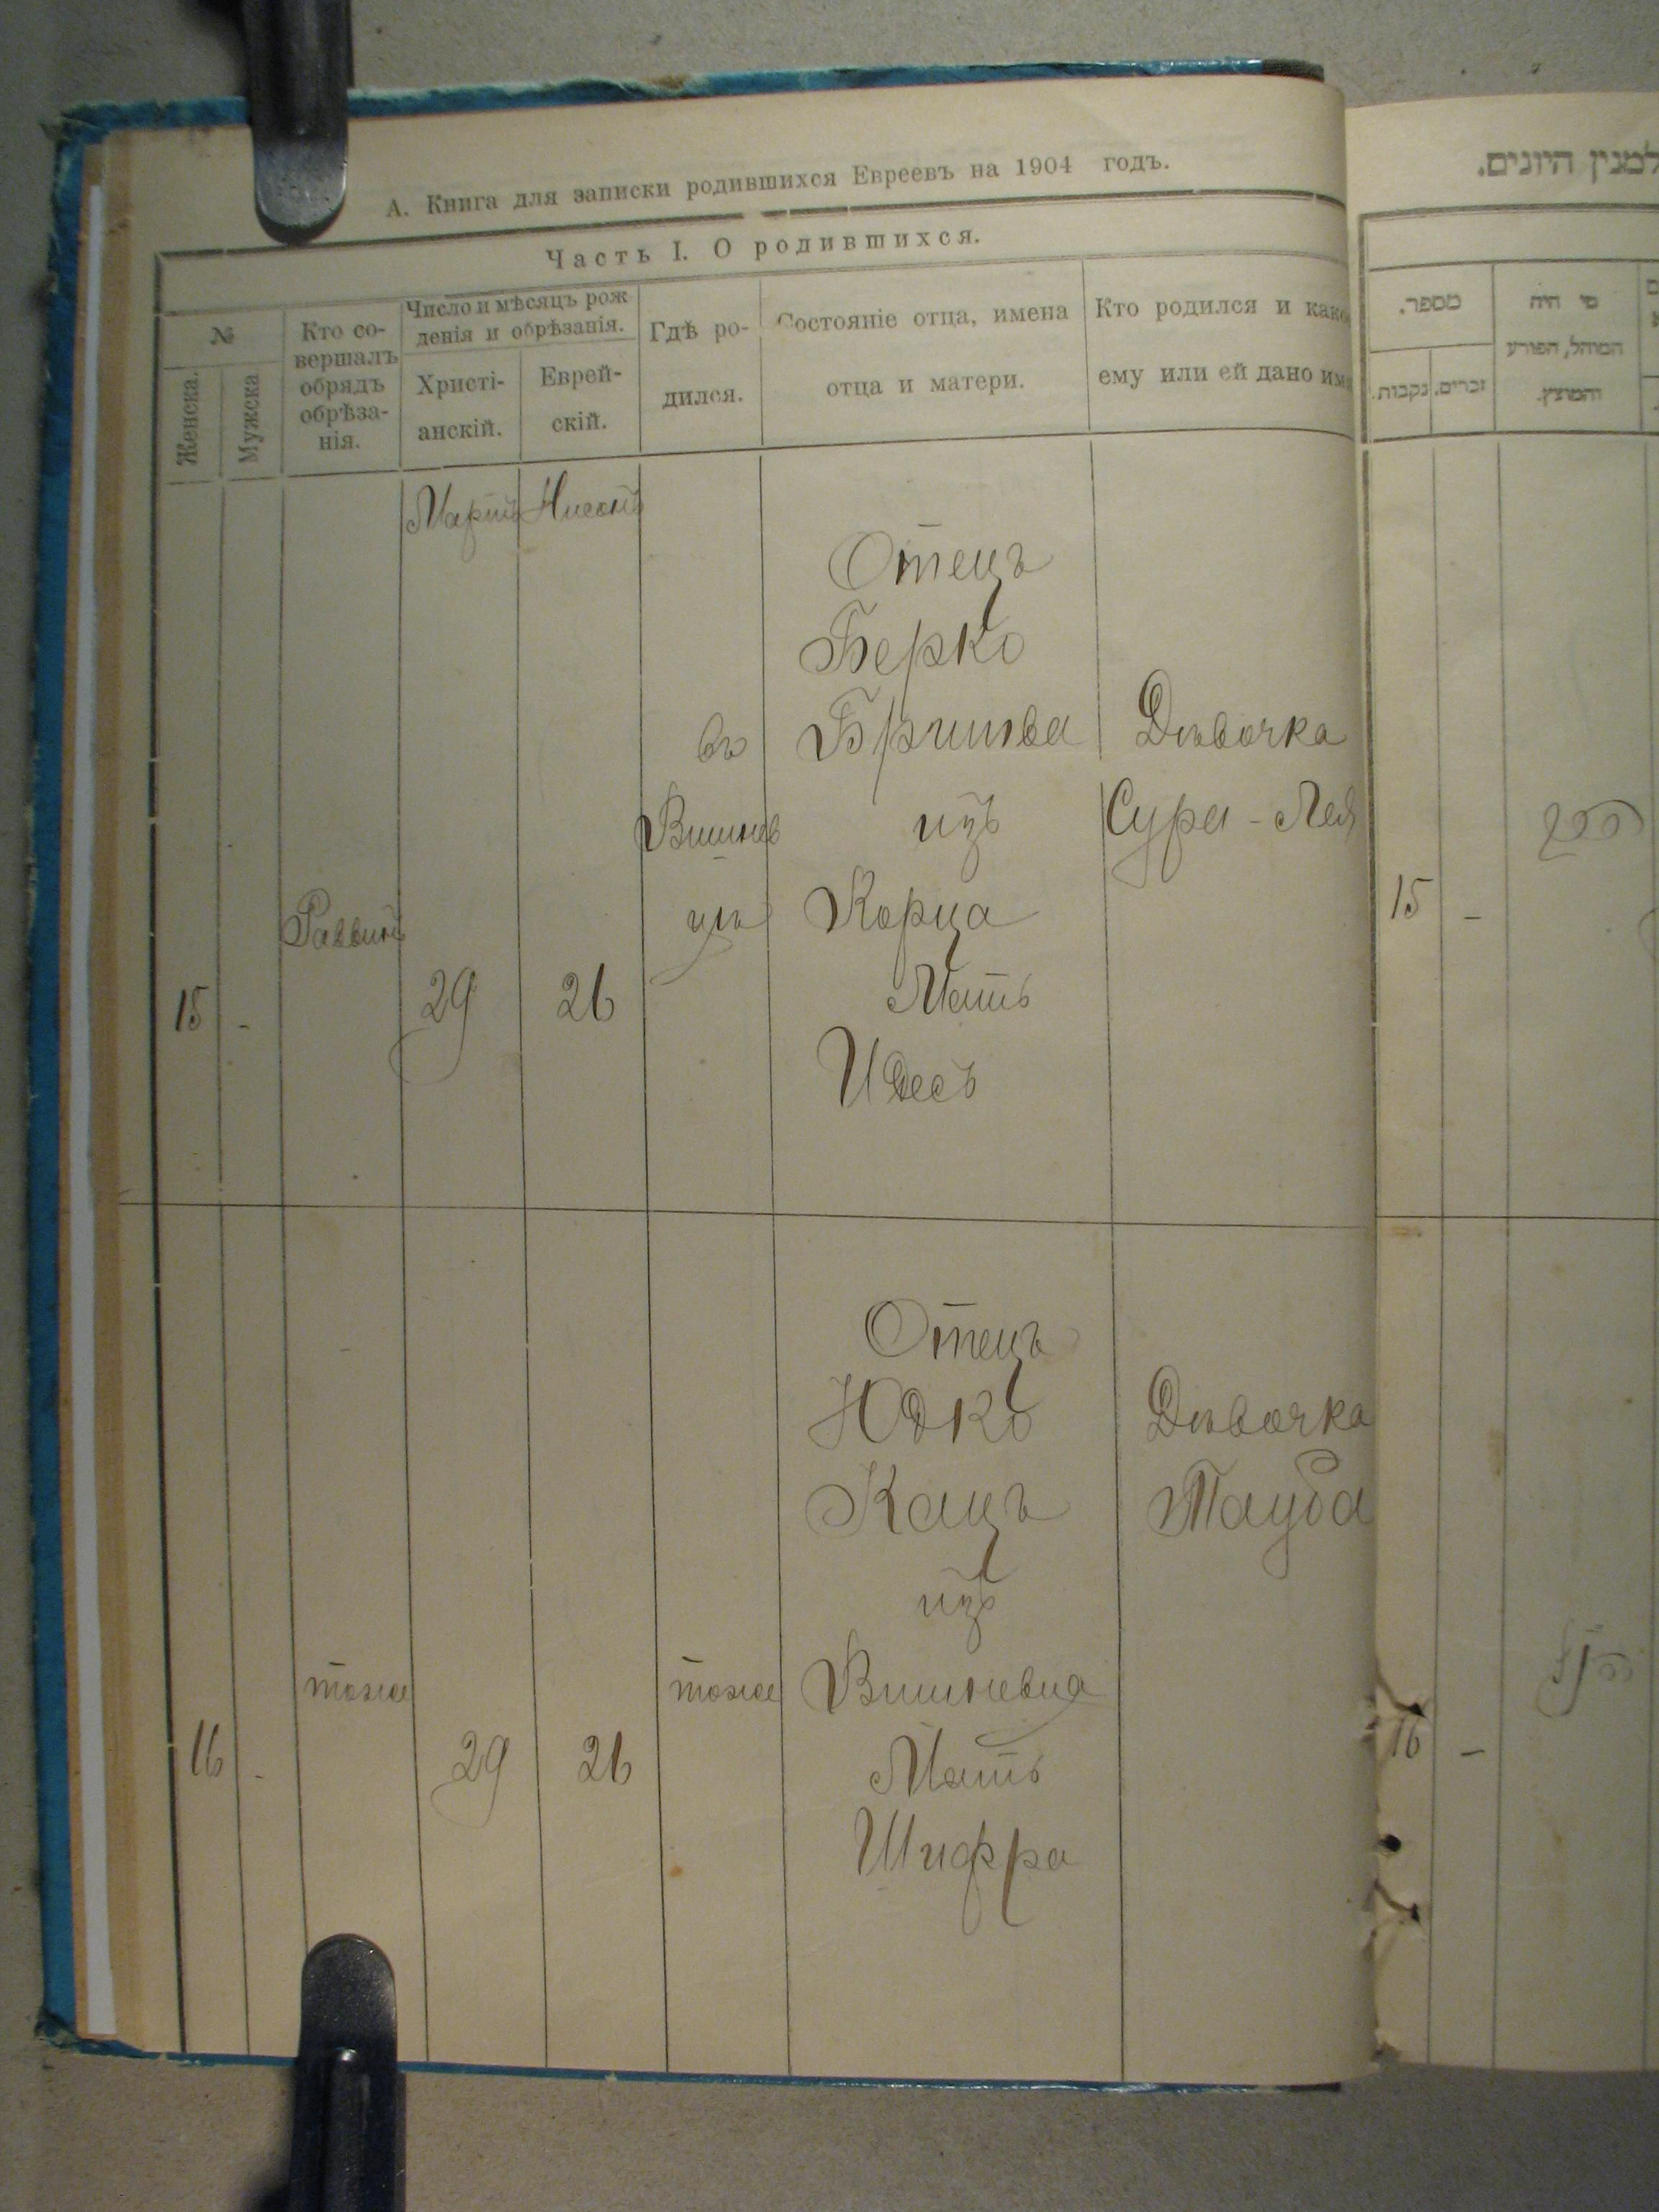 А. Книга для записки родившихся Евреевъ на 1904 годъ.
Часть I. О родившихся.
№
Женска.
Мужска
Кто со-
вершалъ
обрядъ
обрѣза-
нія.
Число и мѣсяцъ рож
денія и обрѣзанія.
Христі-
анскій.
Еврей-
скій.
Гдѣ ро-
дился.
Состояніе отца, имена
отца и матери.
Кто родился и како
ему или ей дано им
Мартъ
Нисонъ
15
-
Раввинъ
29
26
въ
Вишнев
цѣ
Отецъ
Берко
изъ
Корца
Мать
Идесъ
Дѣвочка
Сура - Лея
16
-
тоже
29
26
тоже
Отецъ
Юдко
Кацъ
изъ
Вишневца
Мать
Шифра
Дѣвочка
Тауба
למנין היונים.
מספר.
נקבות.
זכרים.
מי היה
המוהל, הפורע
והמוצץ.
15 -
16 -